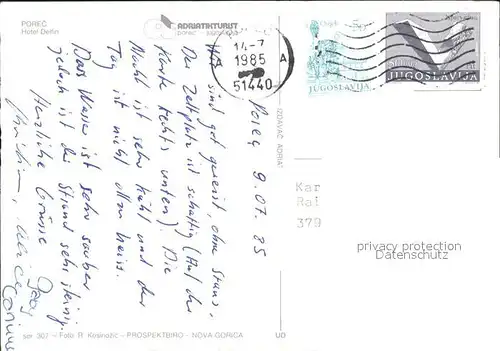 POREČ
Hotel Delfin
ADRIATIKTURIST
14-7
1985
51440
A
JUGOSLAVIJA
JUGOSLAVIJA
IZDAVAČ ADRIAT
Poreč 9.07.85
sind gut gereist, ohne Staus,
Der Zeltplatz ist schattig (Auf der
Karte rechts unten). Die
Nacht ist sehr kühl und der
Tag ist nicht allzu heiss.
Das Wasser ist sehr sauber
jedoch ist der Strand sehr steinig.
Herzliche Grüsse
Kar
Rai
379
privacy protection
Datenschutz
ser 307 – Foto R. Kosinožić – PROSPEKTBIRO – NOVA GORICA
UD